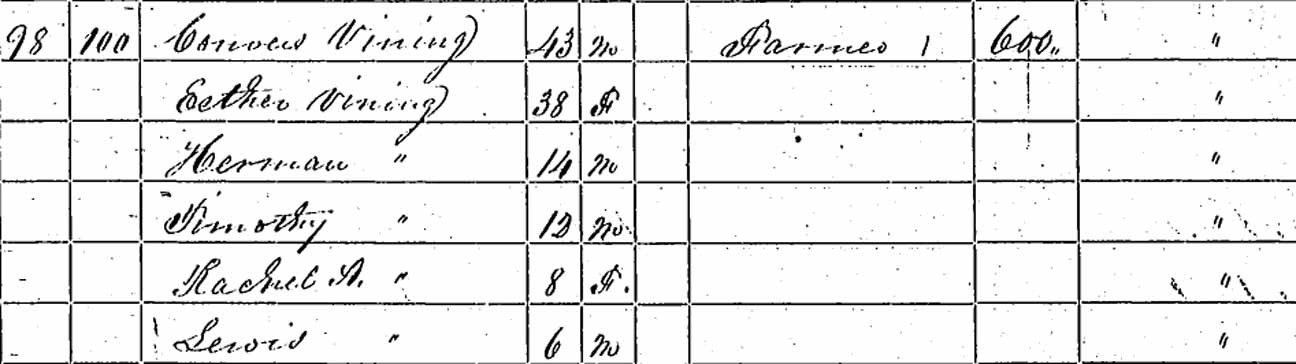 98 100 Conver Vining 43 M Farmer 1 600 "
Esther Vining 38 F "
Herman " 14 M "
Timothy " 12 M "
Rachel A. " 8 F. "
Lewis " 6 M "